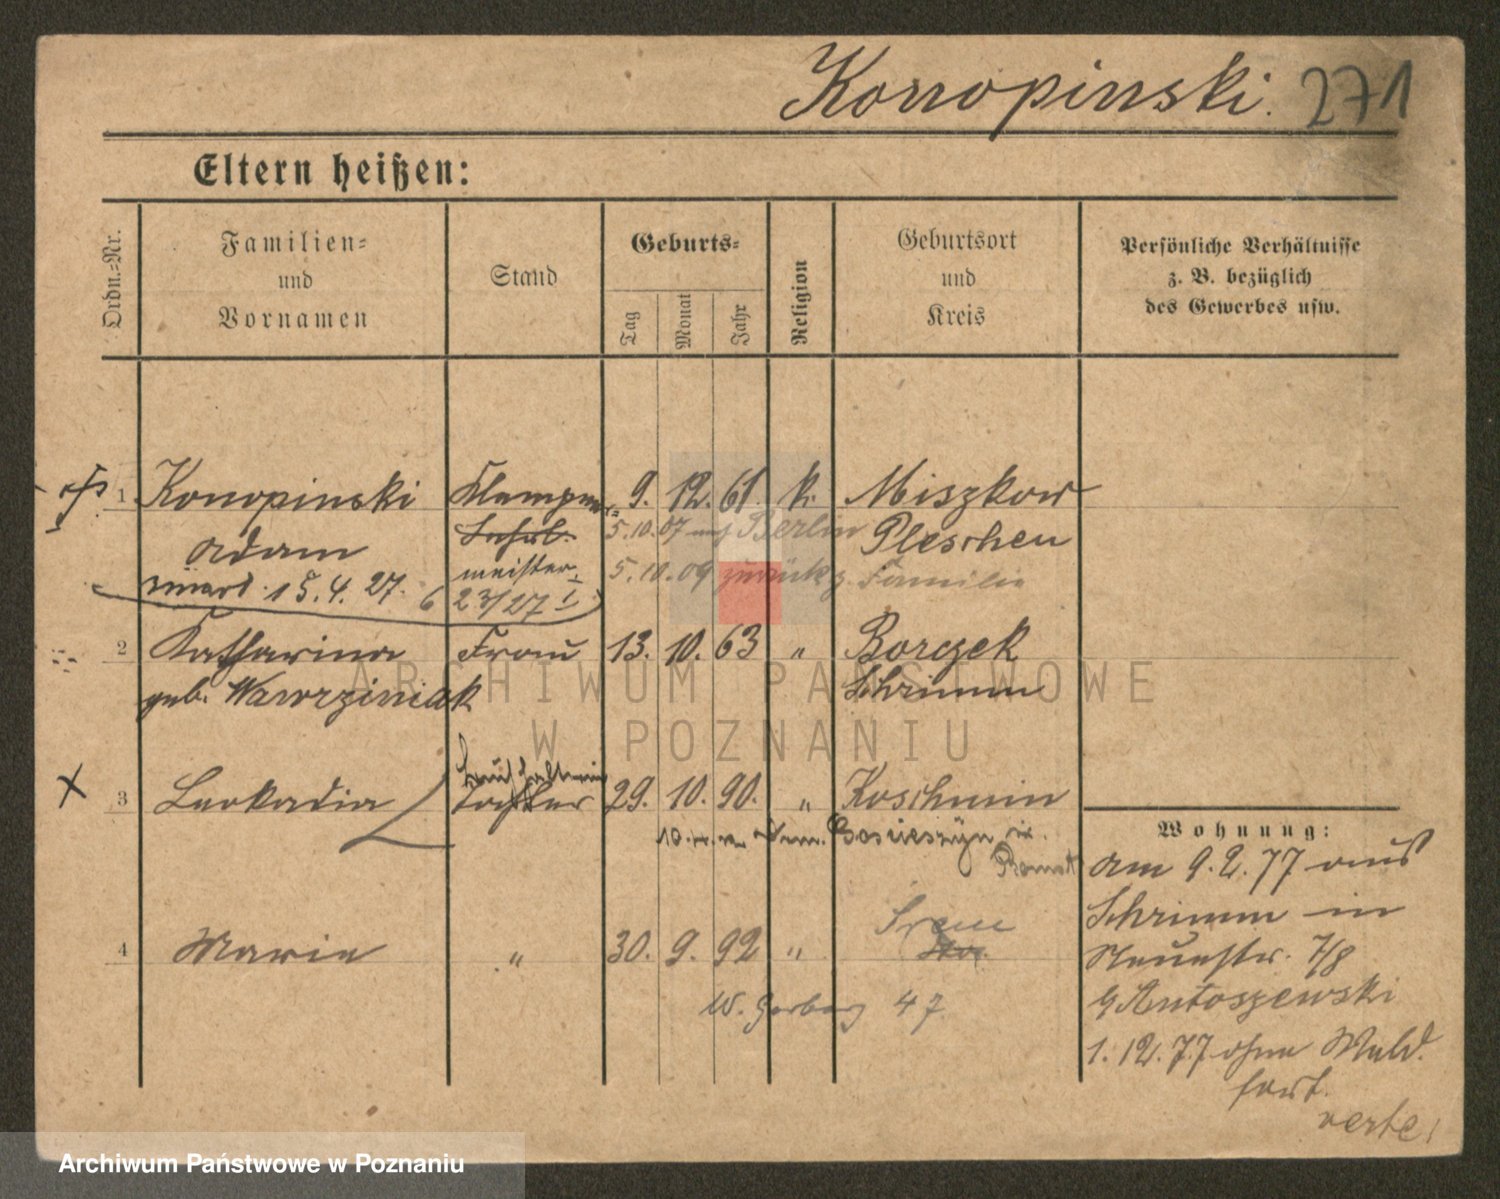 Konopinski. 271
Eltern heißen:
Ordn.-Nr.
Familien-
und
Vornamen
Stand
Geburts-
Tag
Monat
Jahr
Religion
Geburtsort
und
Kreis
Persönliche Verhältnisse
z. B. bezüglich
des Gewerbes usw.
1 Konopinski Klempner- 9. 12. 61. k. Miszkow
5.10.07 Berlin
Adam Pleschen
meister
5.10.09 zurück z. Familie
15. 4. 27. 6 23/27 I
2 Katharina Frau 13. 10. 63 " Borczek
geb. Wawrziniak Schrimm
ARCHIWUM PAŃSTWOWE
W POZNANIU
3 Leokadia Tochter 29. 10. 90. " Koschmin
Wohnung:
am 9.2.77 aus
Schrimm in
Neuestr. 7/8
b/ Antoszewski
1.12.77 ohne Meld.
fort.
verte!
4 Marie " 30. 9. 92 "
Srem
W. Gerber 47
Archiwum Państwowe w Poznaniu